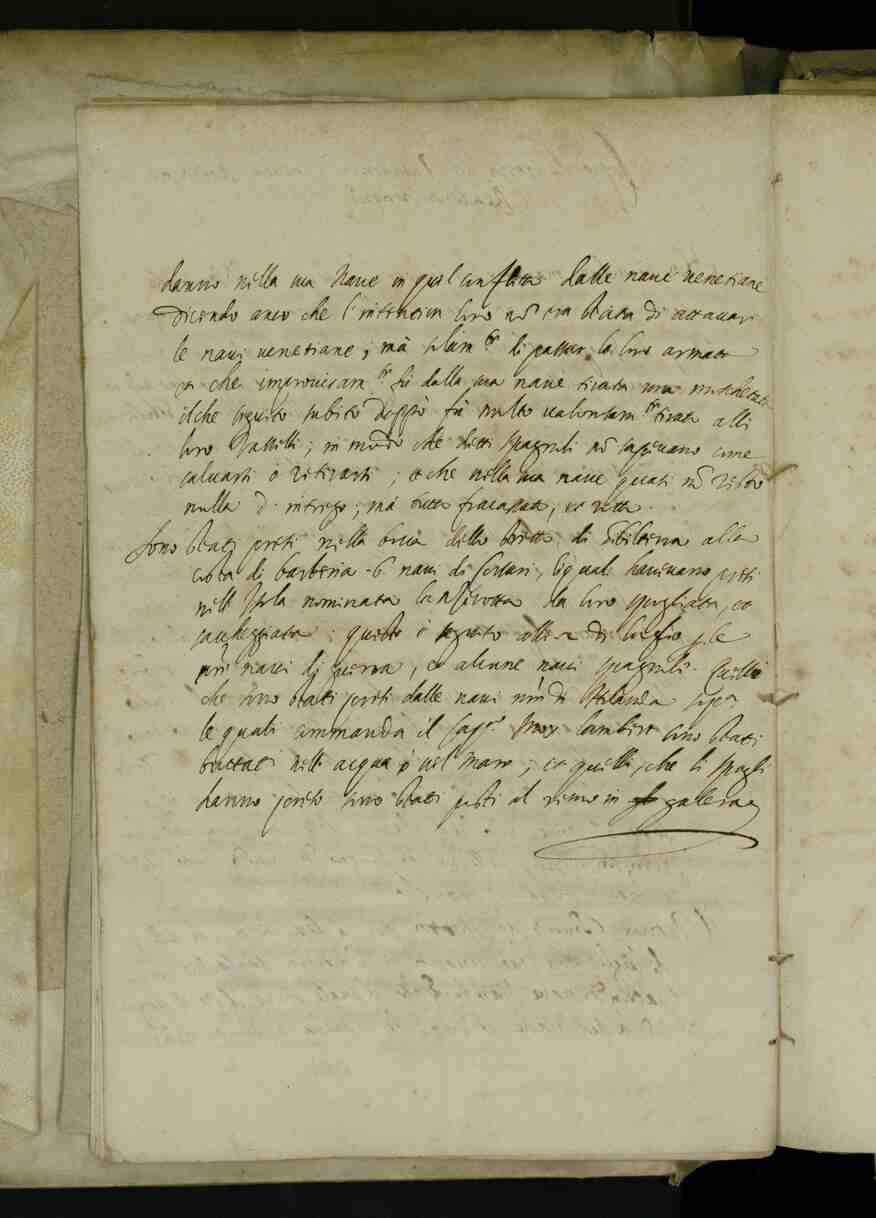 danno nella sua Naue in quel conflitto dalle naui uenetiane
Dicendo anco che l'intention loro nō era stata di attacar
le naui uenetiane; mà solam.te di passar la loro armata
et che improuisam.te fù dalla sua naue tirata una moschettata
ilche seguito subito doppò fù molto ualoroam.te tirato alli
loro Vasselli; in modo che detti spagnoli nō sapeuano come
saluarsi ò ritirarsi; et che nella sua naue quasi nō restò
nulla d'intrego; mà tutta fracassata, et rotta.
Sono stati presi nella bocca dello stretto di Gibilterra alla
costa di barberia 6 naui di Corsari, li quali haueuano
nell'Isola nominata Lanserotta da loro spogliata, et
saccheggiata; questo è seguito alli di luglio p le
nr̄e naui di guerra, et alcune naui spagnuole. Quelli
che sono stati presi dalle naui nr̄e di Hollanda sopra
le quali commanda il Cap.no Moy Lambert sono stati
buttati nell'acqua ò nel mare; et quelli, che li Spagli
hanno preso sono stati posti al remo in galera